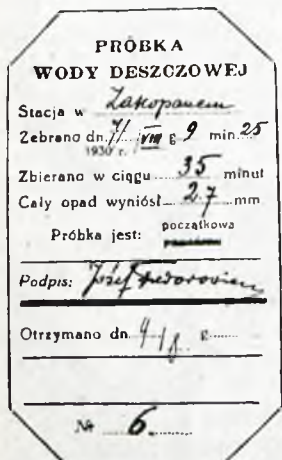 PRÓBKA
WODY DESZCZOWEJ
Stacja w Zakopanem
Zebrano dn. 7/VIII g 9 min. 25
1930 r.
Zbierano w ciągu 35 minut
Cały opad wyniósł 2.7 mm
początkowa
Próbka jest:
Podpis: Józef
Otrzymano dn. g.
№ 6.